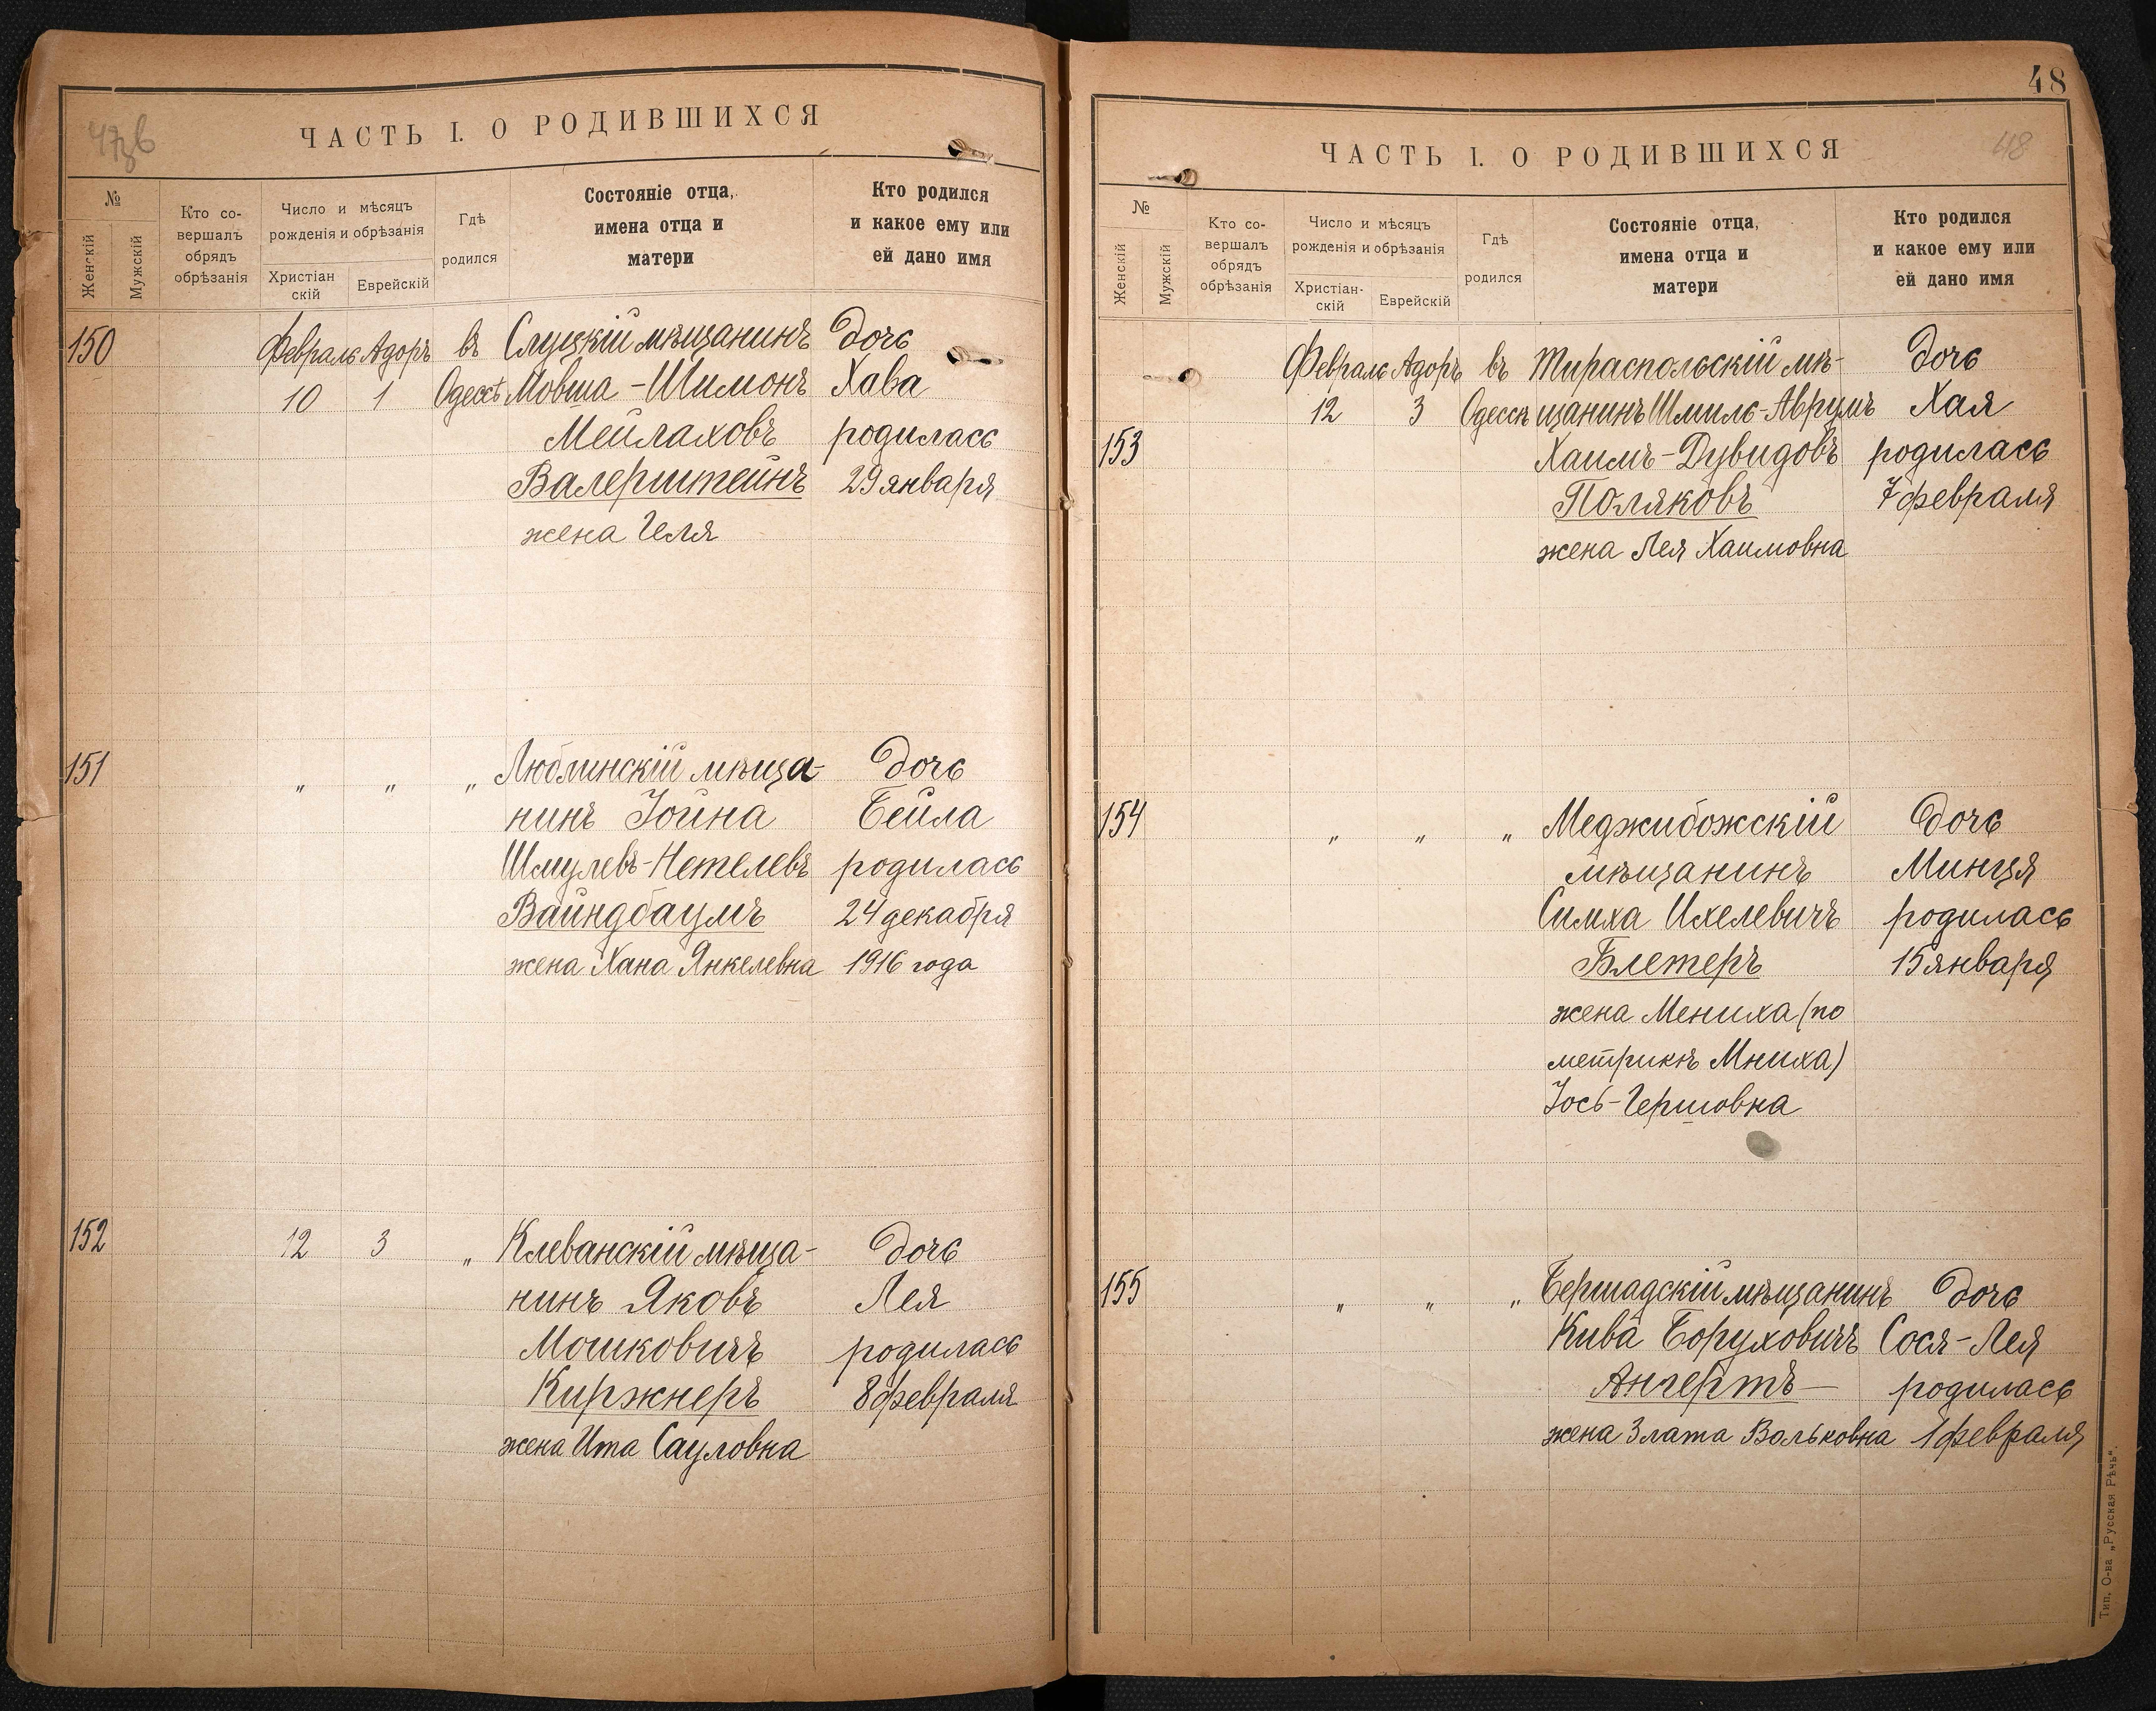 ЧАСТЬ I. О РОДИВШИХСЯ
№
Женскій
Мужскій
Кто со-
вершалъ
обрядъ
обрѣзанія
Число и мѣсяцъ
рожденія и обрѣзанія
Христіан
скій
Еврейскій
Гдѣ
родился
Состояніе отца,
имена отца и
матери
Кто родился
и какое ему или
ей дано имя
150 Февраль Адоръ въ Слуцкій мѣщанинъ Дочь
10 1 Одессѣ Мовша-Шимонъ Хава
Мейлаховъ родилась
Валерштейнъ 29 января
жена Геля
151 „ „ „ Люблинскій мѣща- Дочь
нинъ Іойна Бейла
Шмулевъ-Нетелевъ родилась
Вайндбаумъ 24 декабря
жена Хана Янкелевна 1916 года
152 12 3 „ Клеванскій мѣща- Дочь
нинъ Яковъ Лея
Мошковичъ родилась
Киржнеръ 8 февраля
жена Ита Сауловна
48
ЧАСТЬ I. О РОДИВШИХСЯ
48
№
Женскій
Мужскій
Кто со-
вершалъ
обрядъ
обрѣзанія
Число и мѣсяцъ
рожденія и обрѣзанія
Христіан-
скій
Еврейскій
Гдѣ
родился
Состояніе отца,
имена отца и
матери
Кто родился
и какое ему или
ей дано имя
Февраль Адоръ въ Тираспольскій мѣ- Дочь
12 3 Одессѣ щанинъ Шмиль-Аврумъ Хая
153 Хаимъ-Дувидовъ родилась
Поляковъ 7 февраля
жена Лея Хаимовна
154 „ „ „ Меджибожскій Дочь
мѣщанинъ Минця
Симха Ихелевичъ родилась
Блетеръ 15 января
жена Мениха (по
метрикѣ Мниха)
Іось-Гершовна
155 „ „ „ Бершадскій мѣщанинъ Дочь
Кива Боруховичъ Сося-Лея
Ангертъ родилась
жена Злата Вольковна 1 февраля
Тип. О-ва „Русская Рѣчь".